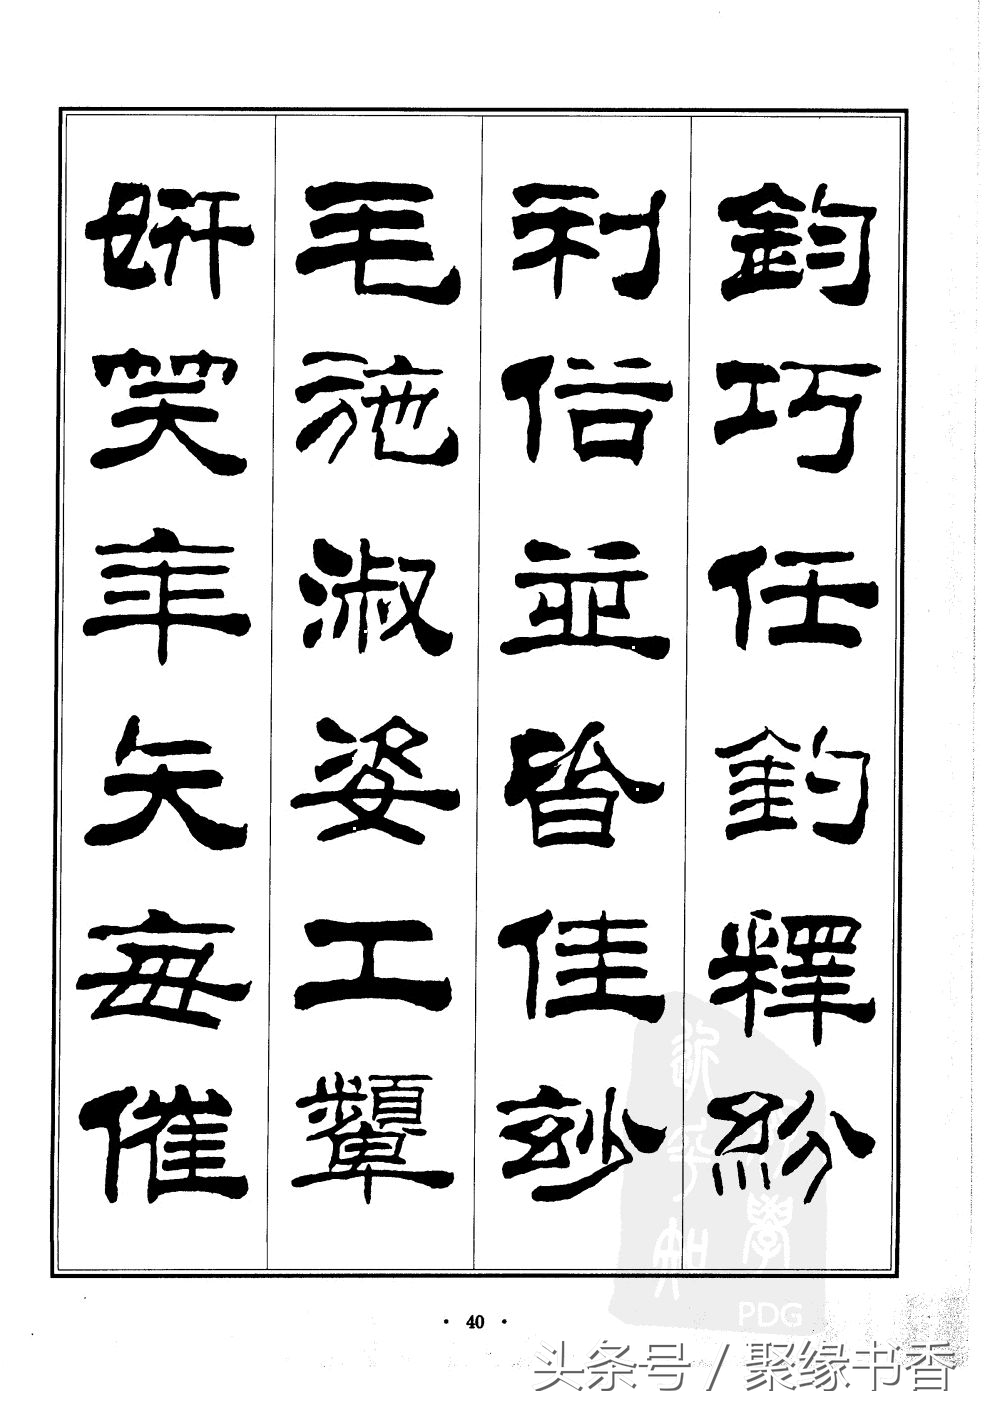 鈞巧任釣釋紛
利俗並皆佳玅
毛施淑姿工顰
妍笑年矢每催
· 40 ·
PDG
头条号 / 聚缘书香